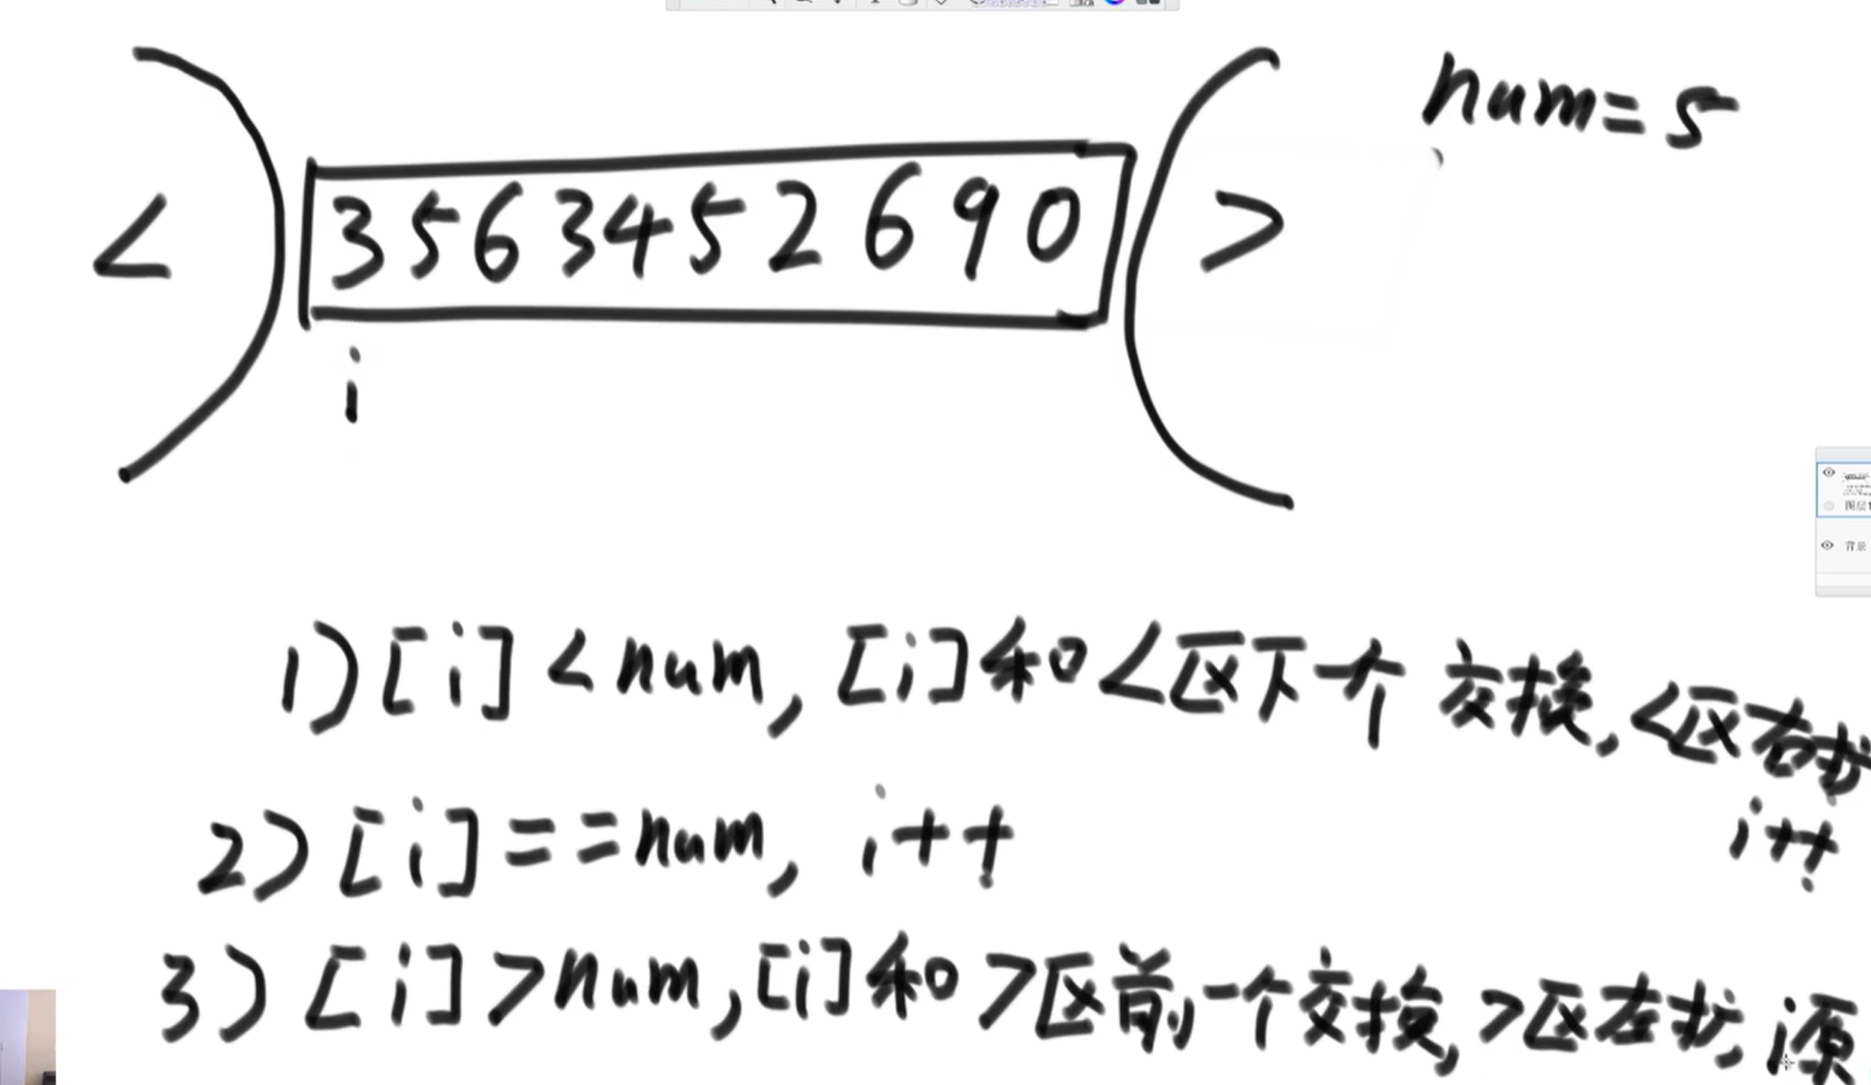 num=5
< 3 5 6 3 4 5 2 6 9 0 >
i
1) [i] < num, [i]和<区下一个 交换, <区右扩
i++
2) [i] == num, i++
3) [i] > num, [i]和 >区前一个交换, >区左扩, i源
图层1
背景